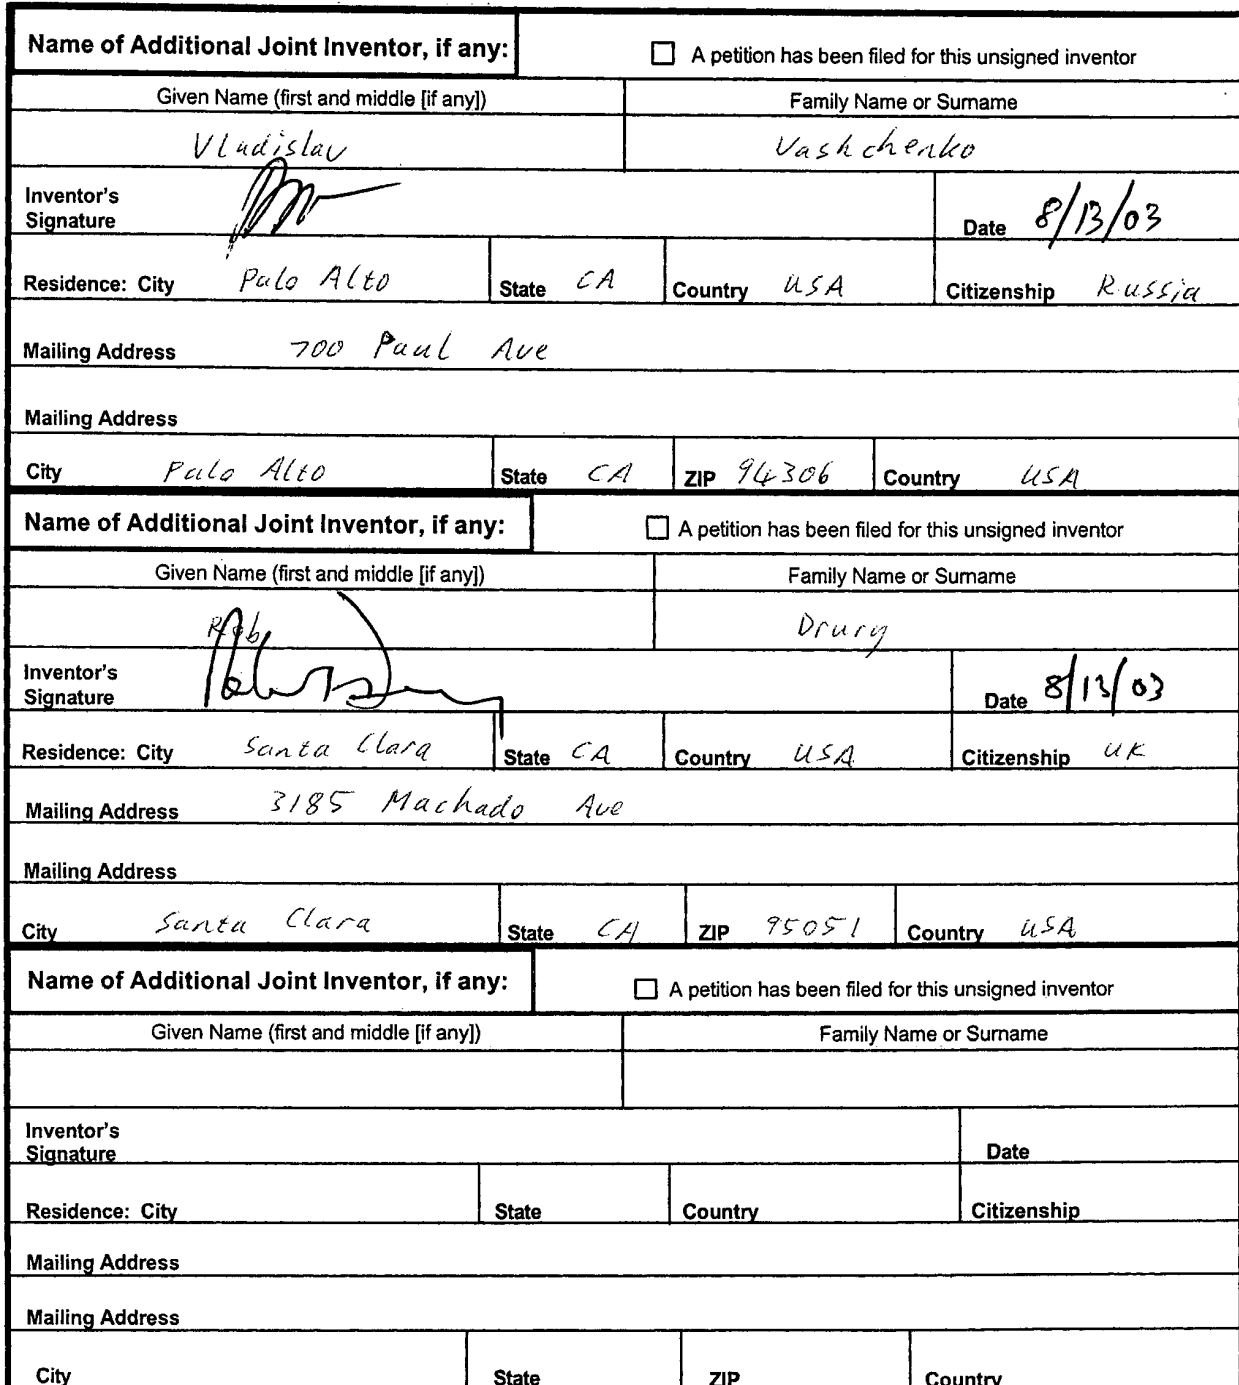 Name of Additional Joint Inventor, if any: A petition has been filed for this unsigned inventor
Given Name (first and middle [if any]) Family Name or Surname
Vladislav Vashchenko
Inventor's
Signature Date 8/13/03
Residence: City Palo Alto State CA Country USA Citizenship Russia
Mailing Address 700 Paul Ave
Mailing Address
City Palo Alto State CA ZIP 94306 Country USA
Name of Additional Joint Inventor, if any: A petition has been filed for this unsigned inventor
Given Name (first and middle [if any]) Family Name or Surname
Rob Drury
Inventor's
Signature Date 8/13/03
Residence: City Santa Clara State CA Country USA Citizenship UK
Mailing Address 3185 Machado Ave
Mailing Address
City Santa Clara State CA ZIP 95051 Country USA
Name of Additional Joint Inventor, if any: A petition has been filed for this unsigned inventor
Given Name (first and middle [if any]) Family Name or Surname
Inventor's
Signature Date
Residence: City State Country Citizenship
Mailing Address
Mailing Address
City State ZIP Country